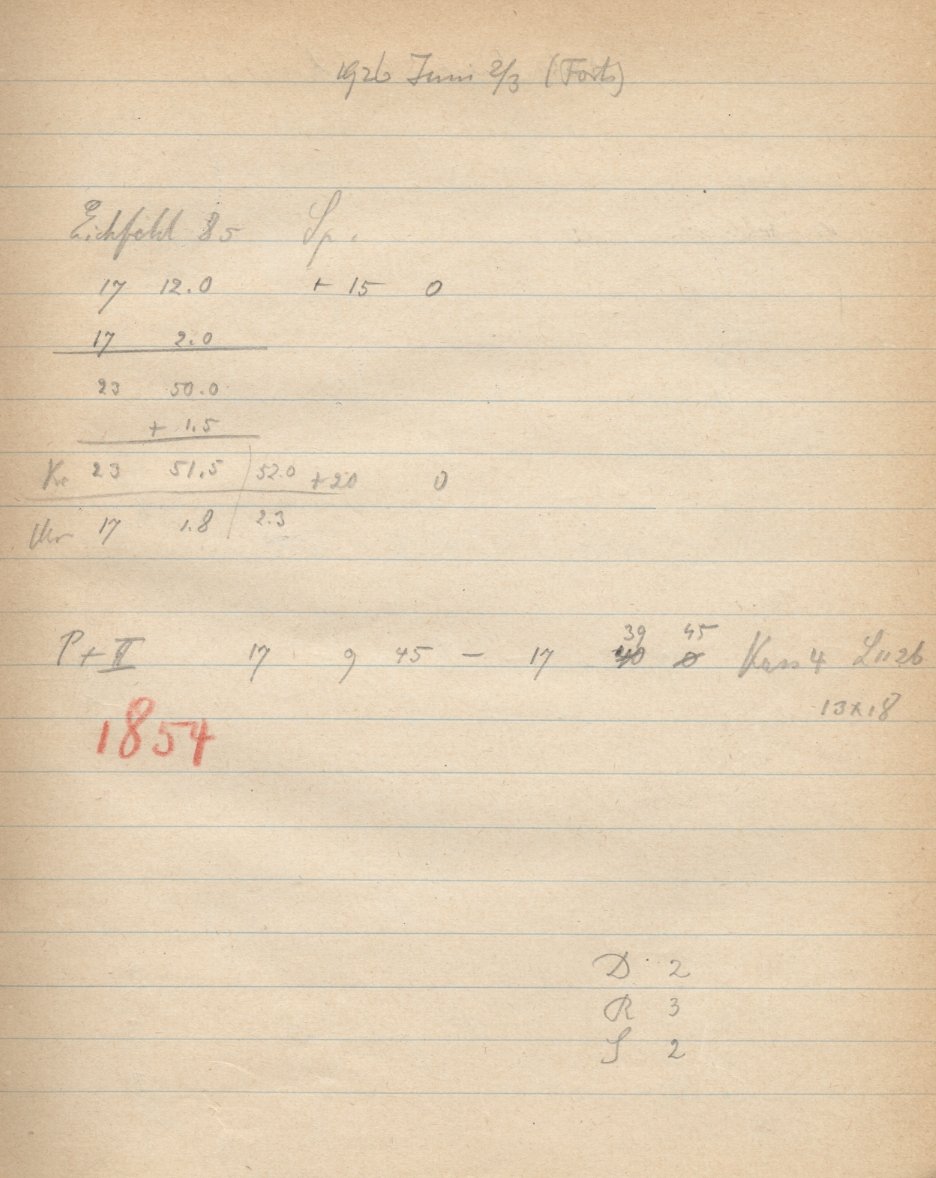 1926 Juni 2/3 (Forts)
Eichfeld 85 Sp.
17 12.0 + 15 0
17 2.0
23 50.0
+ 1.5
Kr 23 51.5 52.0 +20 0
Uhr 17 1.8 2.3
39 45
P + II 17 9 45 – 17 40 0 Kass 4
13x18
1854
D 2
R 3
S 2